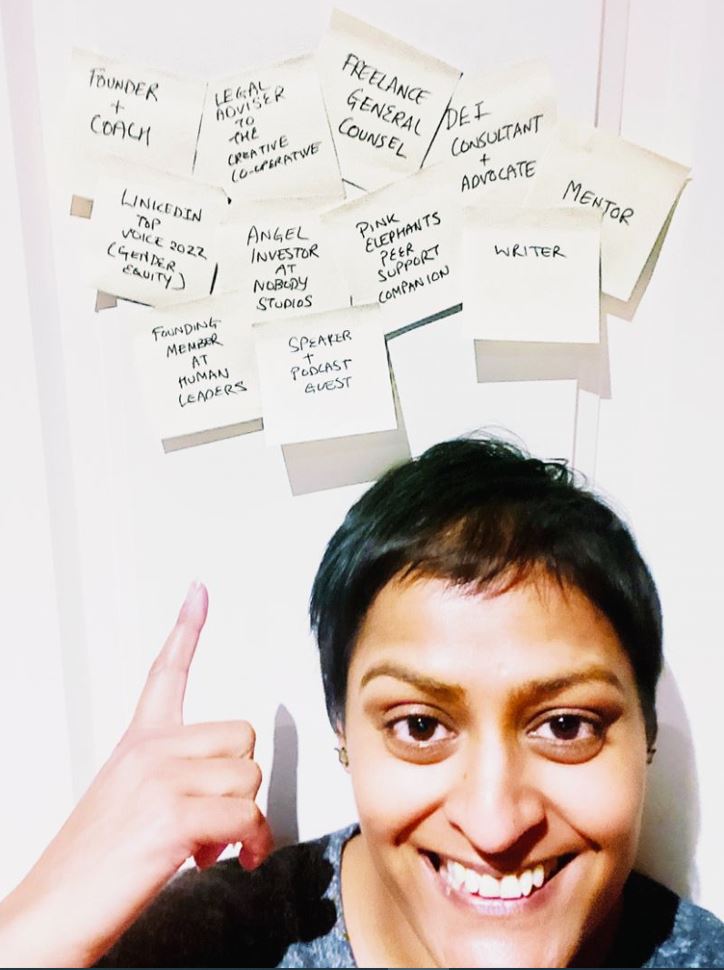 FOUNDER
+
COACH
LEGAL
ADVISER
TO
THE
CREATIVE
CO-OPERATIVE
FREELANCE
GENERAL
COUNSEL
DEI
CONSULTANT
+
ADVOCATE
MENTOR
LINKEDIN
TOP
VOICE 2022
(GENDER
EQUITY)
ANGEL
INVESTOR
AT
NOBODY
STUDIOS
PINK
ELEPHANTS
PEER
SUPPORT
COMPANION
WRITER
FOUNDING
MEMBER
AT
HUMAN
LEADERS
SPEAKER
+
PODCAST
GUEST